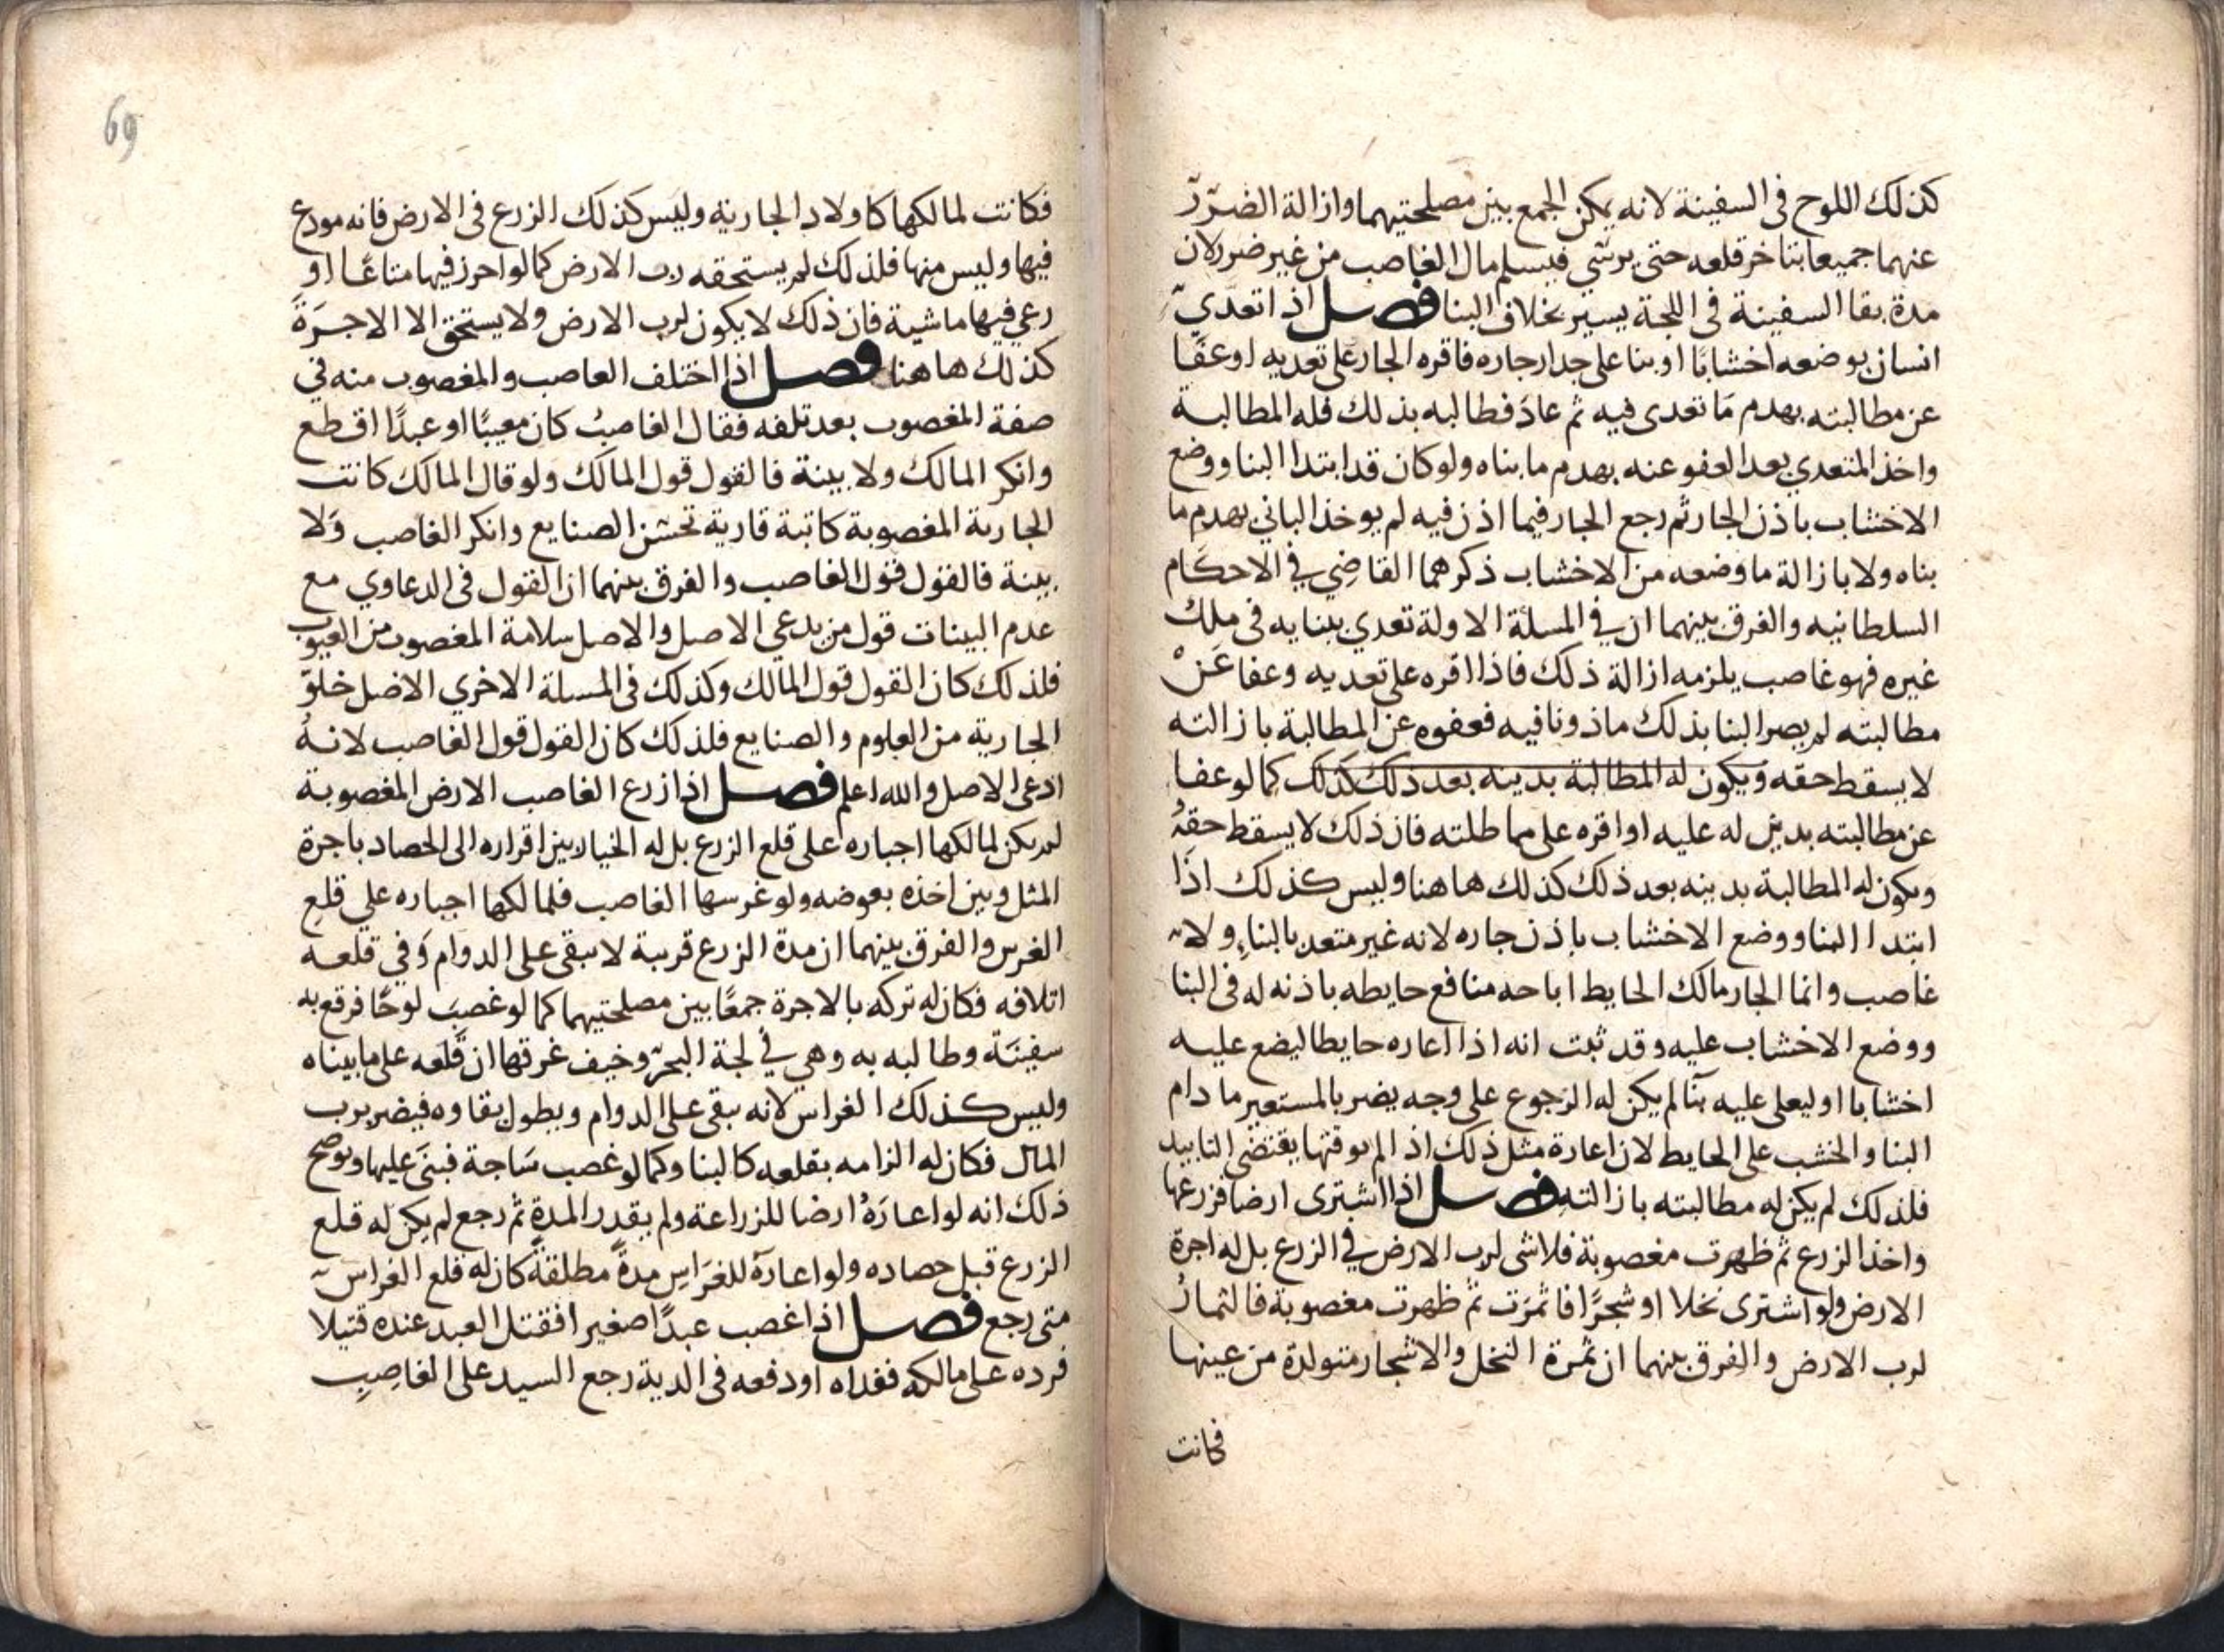 كذلك اللوح في السفينة لانه يمكن الجمع بين مصلحتيهما وازالة الضرر
عنهما جميعا بتاخر قلعه حتى يرسي فيسلم مال الغاصب من غير ضرر لان
مدة بقا السفينة في اللجة يسير بخلاف البنا فصل اذا تعدي
انسان بوضعه اخشابًا او بنا على جدار جاره فاقره الجار على تعديه او عفا
عن مطالبته بهدم مَا تعدى فيه ثم عادَ فطالبه بذلك فله المطالبة
واخذ المتعدي بعد العفو عنه بهدم ما بناه ولو كان قد ابتدا البنا ووضع
الاخشاب باذن الجار ثم رجع الجار فيما اذن فيه لم يوخذ الباني بهدم ما
بناه ولا بازالة ما وضعه من الاخشاب ذكرهما القاضِي في الاحكَام
السلطانيه والفرق بينهما ان في المسلة الاولة تعدي ببنايه في ملك
غيره فهو غاصب يلزمه ازالة ذلك فاذا اقره على تعديه وعفا عَنْ
مطالبته لم يصر البنا بذلك ماذونا فيه فعفوه عن المطالبة بازالته
لا يسقط حقه ويكون له المطالبة بدينه بعد ذلك كذلك كما لو عفا
عن مطالبته بدين له عليه او اقره على مماطلته فان ذلك لا يسقط حقهُ
ويكون له المطالبة بدينه بعد ذلك كذلك هاهنا وليس كذلك اذَا
ابتدا البنا ووضع الاخشاب باذن جاره لانه غير متعد بالبناءِ ولا
غاصب وانما الجار مالك الحايط اباحه منافع حايطه باذنه له في البنا
ووضع الاخشاب عليه وقد ثبت انه اذا اعاره حايطا ليضع عليه
اخشابا او ليعلى عليه بنًا لم يكن له الرجوع على وجه يضر بالمستعير ما دام
البنا والخشب على الحايط لان اعارة مثل ذلك اذا لم يوقتها يقتضى التابيد
فلذلك لم يكن له مطالبته بازالته فصل اذا اشترى ارضا فزرعها
واخذ الزرع ثم ظهرت مغصوبة فلا شى لرب الارض في الزرع بل له اجرة
الارض ولو اشترى نخلا او شجرًا فاثمرَت ثم ظهرت مغصوبة فالثمارُ
لرب الارض والفرق بينهما ان ثمرة النخل والاشجار متولدة من عينها
فكانت
69
فكانت لمالكها كاولاد الجارية وليس كذلك الزرع في الارض فانه مودع
فيها وليس منها فلذلك لم يستحقه رب الارض كما لو احرز فيها متاعًا او
رعي فيها ماشية فان ذلك لا يكون لرب الارض ولا يستحق الا الاجرَةَ
كذلك هاهنا فصل اذا اختلف الغاصب والمغصوب منه في
صفة المغصوب بعد تلفه فقال الغاصبُ كان معيبًا او عبدًا اقطع
وانكر المالك ولا بينة فالقول قول المالك ولو قال المالك كانت
الجارية المغصوبة كاتبة قارية تحسن الصنايع وانكر الغاصب وَلا
بينة فالقول قول الغاصب والفرق بينهما ان القول في الدعاوي مع
عدم البينات قول من يدعي الاصل والاصل سلامة المغصوب من العيوب
فلذلك كان القول قول المالك وكذلك في المسلة الاخري الاصل خلوّ
الجارية من العلوم والصنايع فلذلك كان القول قول الغاصب لانهُ
ادعى الاصل والله اعلم فصل اذا زرع الغاصب الارض المغصوبة
لم يكن لمالكها اجباره على قلع الزرع بل له الخيار بين اقراره الى الحصاد باجرة
المثل وبين اخذه بعوضه ولو غرسها الغاصب فلمالكها اجباره علي قلع
الغرس والفرق بينهما ان مدة الزرع قريبة لا يبقى على الدوام وَفي قلعه
اتلافه فكان له تركه بالاجرة جمعًا بين مصلحتيهما كما لو غصبَ لوحًا فرقع به
سفينَة وطالبه به وهي في لجة البحر وخيف غرقها ان قلعه على ما بيناه
وليس كذلك الغراس لانه يبقى على الدوام ويطول بقاوه فيضر برب
المال فكان له الزامه بقلعه كالبنا وكما لو غصب سَاجة فبنَى عليها ويوضح
ذلك انه لو اعارَهُ ارضا للزراعة ولم يقدر المدة ثم رجع لم يكن له قلع
الزرع قبل حصاده ولو اعارَهُ للغَرَاسِ مدةً مطلقةً كان له قلع الغراس
متى رجع فصل اذا غصب عبدًا صغيرا فقتل العبد عنده قتيلا
فرده على مالكه ففداه او دفعه في الدية رجع السيد على الغاصِبِ